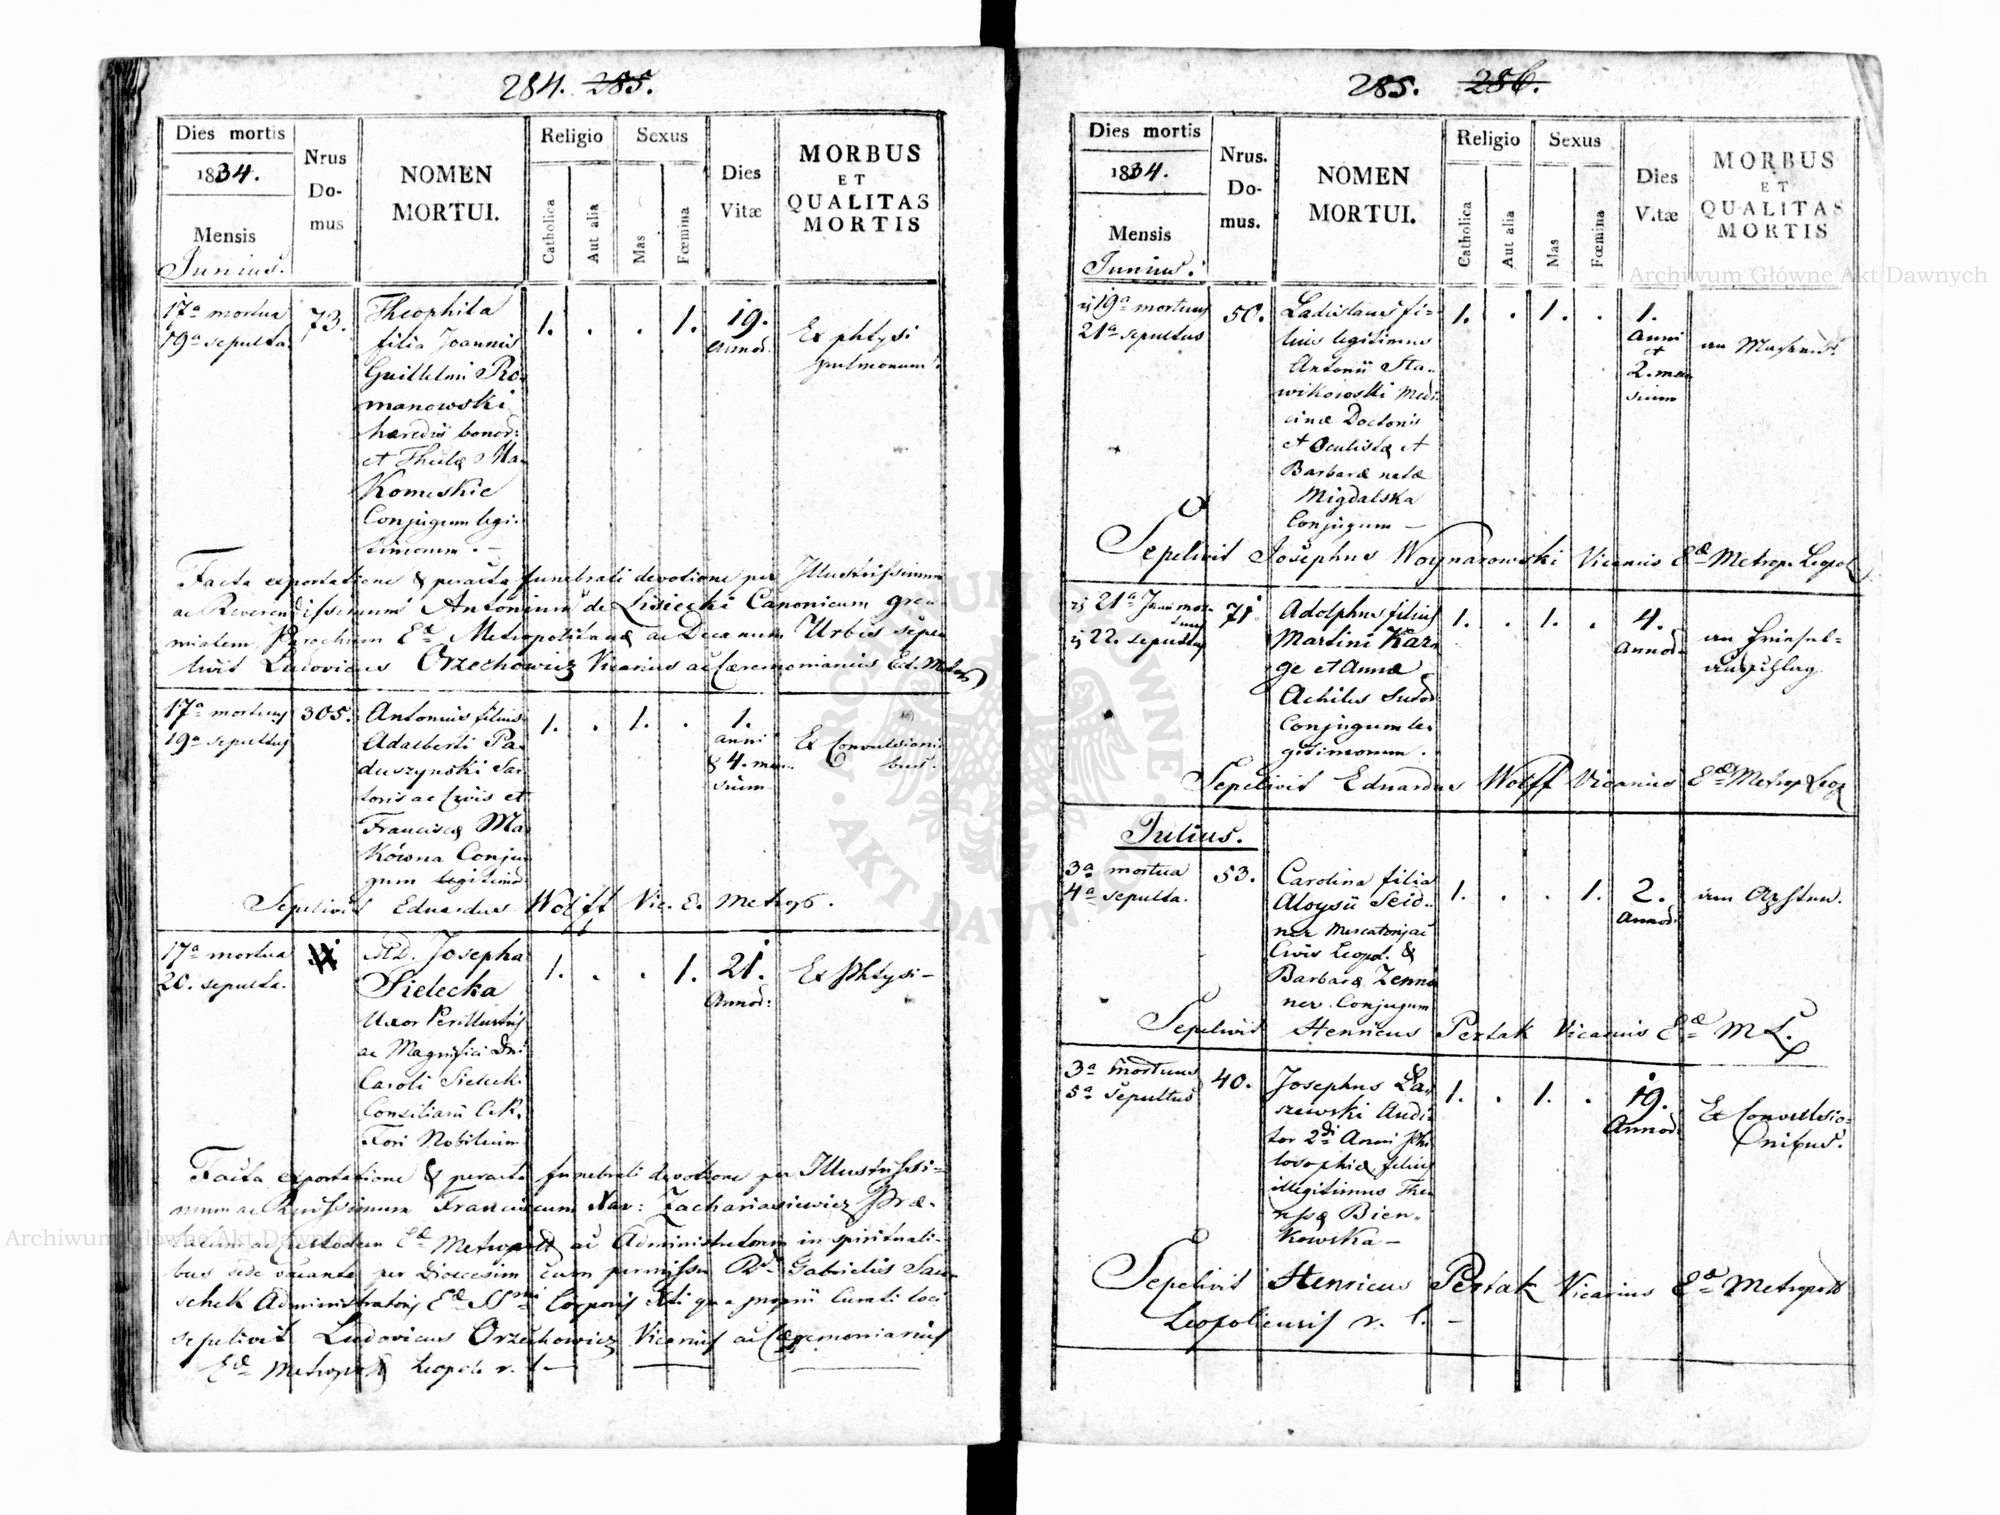 284. 285.
Dies mortis
1834.
Mensis
Junius.
Nrus
Do-
mus
NOMEN
MORTUI.
Religio
Catholica
Aut alia
Sexus
Mas
Fœmina
Dies
Vitæ
MORBUS
ET
QUALITAS
MORTIS
17a mortua
19a sepulta
73.
Theophila
filia Joannis
Guilhelmi Ro-
manowski
hæredis bonor:
et Theclæ Ma-
Komeskie
Conjugum legi-
timorum. -
1. . . 1.
19.
Annor:
Ex phtysi
pulmonum.
Facta exportatione & peracta funebrali devotione per Illustrissimum
ac Reverendissimum Antonium de Lisiecki Canonicum gre-
mialem Parochum Ed Metropolitanæ ac Decanum Urbis sepe-
livit Ludovicus Orzechowicz Vicarius ac Cæremoniarius
17a mortuus
19a sepultus
305.
Antonius filius
Adalberti Pa-
duszynski Sar-
toris ac Civis et
Franciscæ Ma-
Kówna Conju-
gum legitimor:
1. . 1. .
1.
anni
& 4. men-
sium
Ex Convulsioni-
bus.
Sepelivit Eduardus Wolff Vic. E. Metrop.
17a mortua
20. sepulta.
AD. Josepha
Sielecka
Uxor Perillustris
ac Magnifici Dni
Caroli Sielecki
Consiliarii C.R.
Fori Nobilium
1. . . 1.
21.
Annor:
Ex Phtysi-
Facta exportatione & peracta funebrali devotione per Illustrissi-
mum ac Rndissimum Franciscum Xav: Zachariasiewicz Præ-
latum ac Custodem Ed Metropolit ac Administratorem in spirituali-
bus sede vacante per Dioecesim cum permissu Rdi Gabrielis Sau-
schek Administratoris Ed SSmi Corporis Xti qua proprii Curati loci
sepelivit Ludovicus Orzechowicz Vicarius ac Cæremoniarius
Ed Metropolit Leopol. r. l.
285. 286.
Dies mortis
1834.
Mensis
Junius.
Nrus.
Do-
mus.
NOMEN
MORTUI.
Religio
Catholica
Aut alia
Sexus
Mas
Fœmina
Dies
Vitæ
MORBUS
ET
QUALITAS
MORTIS
19a mortuus
21a sepultus
50.
Ladislaus fi-
lius legitimus
Antonii Sła-
wikowski Medi-
cinæ Doctoris
et Oculistæ et
Barbaræ natæ
Migdalska
Conjugum -
1. . 1. .
1.
Anni
et
2. men-
sium
Sepelivit Josephus Woynarowski Vicarius Ed Metrop. Leopol
21a Junii mor-
tuus
22. sepultus
71.
Adolphus filius
Martini Kar-
ge et Annæ
Achilus
Conjugum le-
gitimorum.
1. . 1. .
4.
Annor:
Sepelivit Eduardus Wolff Vicarius Ed Metrop Leop
Julius.
3a mortua
4a sepulta.
53.
Carolina filia
Aloysii Seid-
ner Mercatoris ac
Civis Leopol. &
Barbaræ Zenno-
ner Conjugum
1. . . 1.
2.
Annor:
Sepelivit Henricus Pertak Vicarius Ed M L.
3a mortuus
5a Sepultus
40.
Josephus La-
szewski Audi-
tor 2di Anni Phi-
losophiæ filius
illegitimus The-
ressæ Bien-
Kowska -
1. . 1. .
19.
Annor:
Ex Convulsio-
nibus.
Sepelivit Henricus Pertak Vicarius Ed Metropolit
Leopoliensis r. l. -
Archiwum Główne Akt Dawnych
Archiwum Główne Akt Dawnych
ARCHIWUM GŁÓWNE · AKT DAWNYCH ·